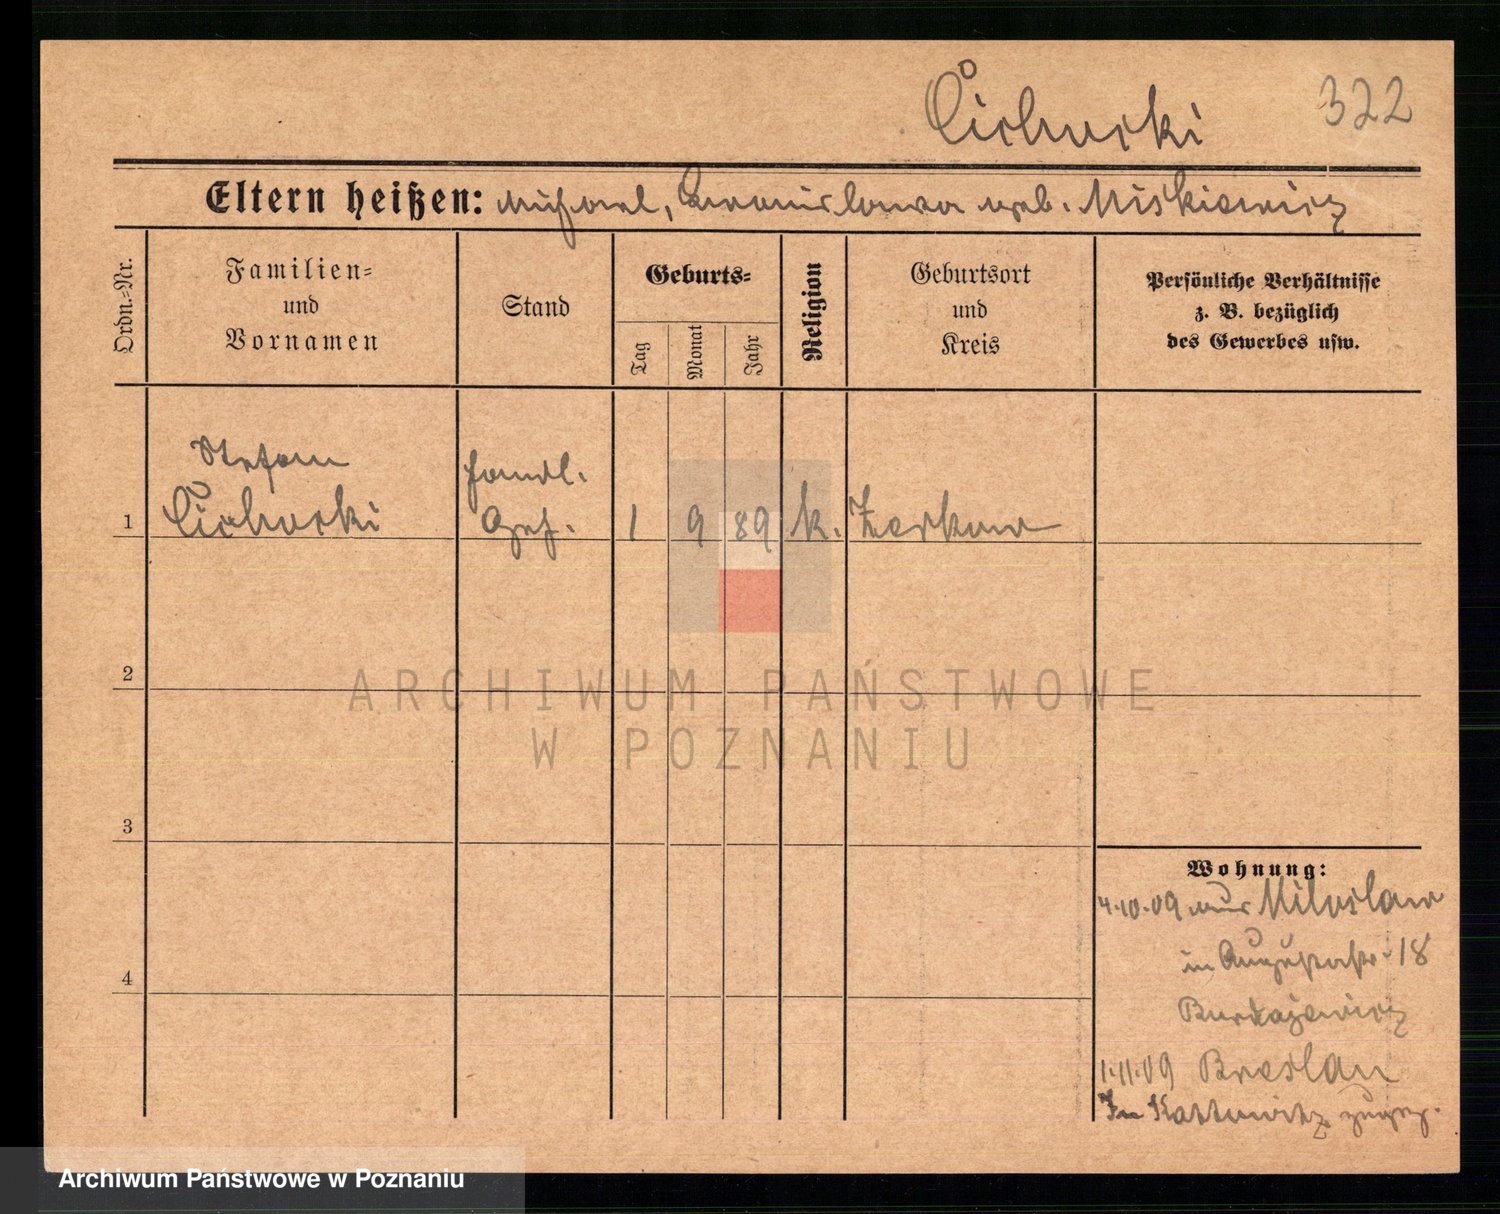 Cichocki
322
Eltern heißen: Michael, Bronislawa geb. Miskiewicz
Ordn.-Nr.
Familien-
und
Vornamen
Stand
Geburts-
Tag
Monat
Jahr
Religion
Geburtsort
und
Kreis
Persönliche Verhältnisse
z. B. bezüglich
des Gewerbes usw.
Stefan
Handl.
1 Cichocki Geh. 1 9 89 k. Zerkow
2
3
4
ARCHIWUM PAŃSTWOWE
W POZNANIU
Wohnung:
4.10.09 aus Miloslaw
in Augustastr. 18
1.11.09 Breslau
In Kattowitz zugez.
Archiwum Państwowe w Poznaniu